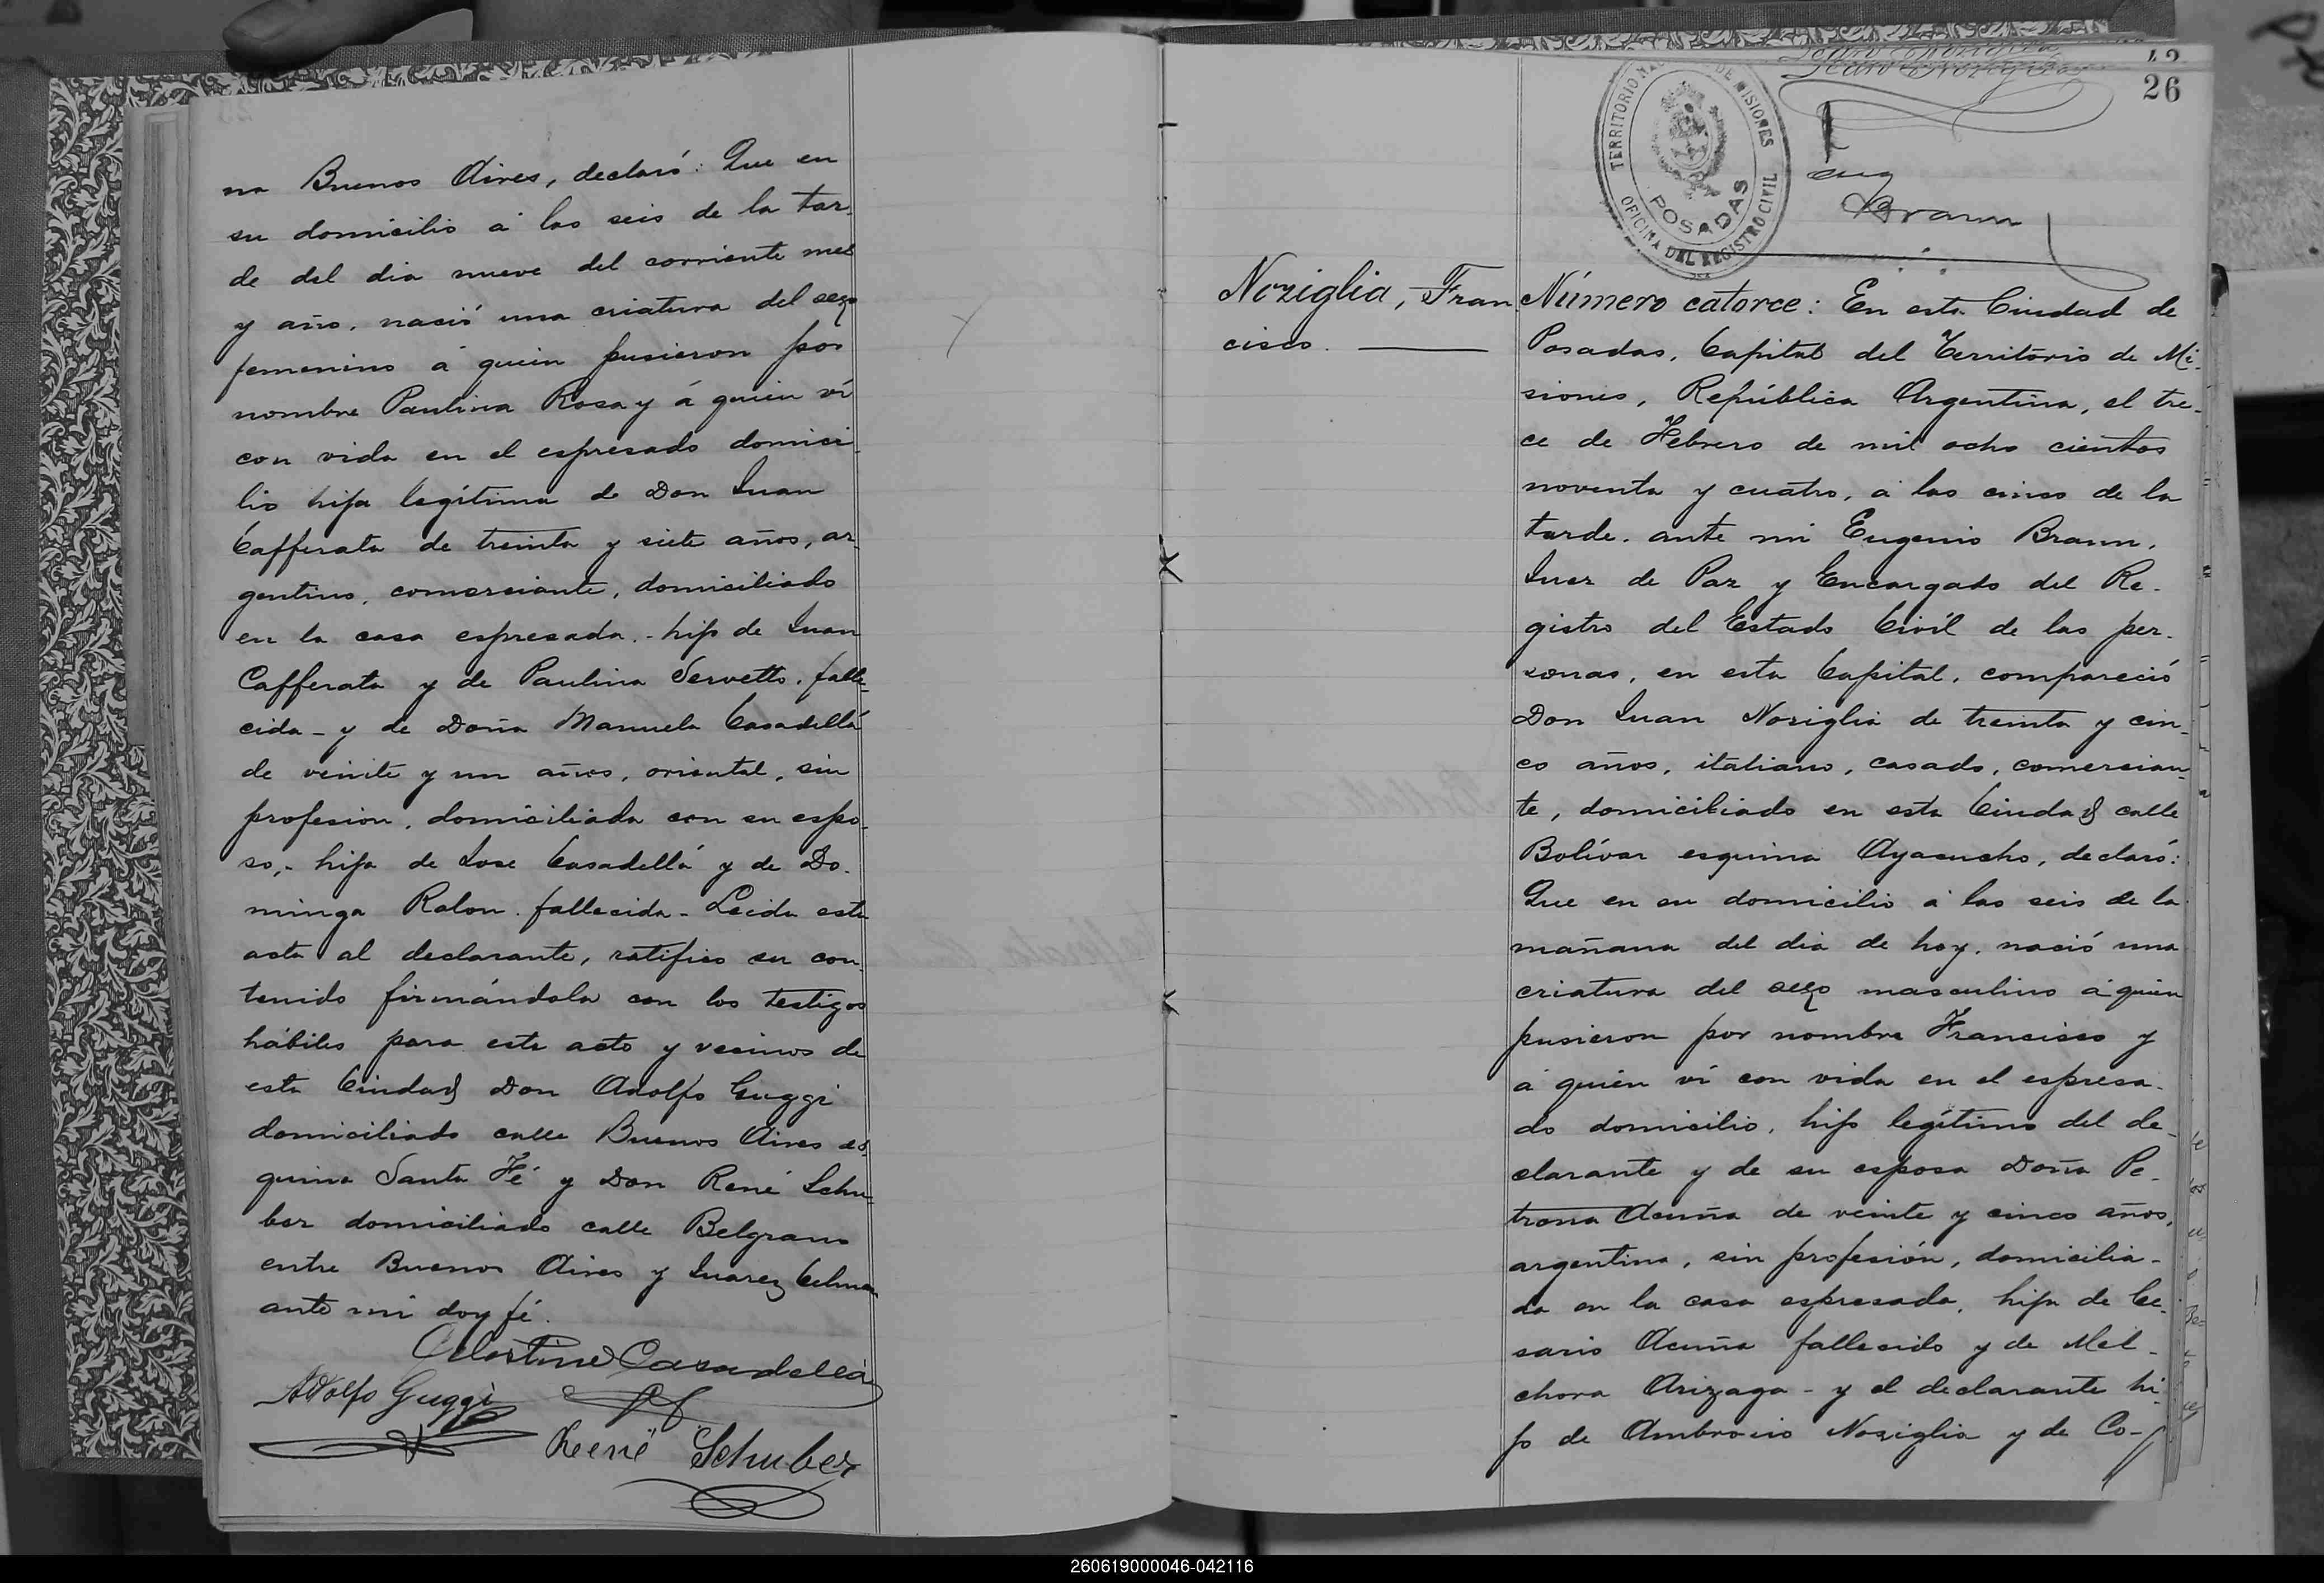 na Buenos Aires, declaró: Que en
su domicilio á las seis de la tar-
de del dia nueve del corriente mes
y año, nació una criatura del sexo
femenino á quien pusieron por
nombre Paulina Rosa y á quien ví
con vida en el espresado domici
lio hija legítima de Don Juan
Cafferata de treinta y siete años, ar
gentino, comerciante, domiciliado
en la casa espresada, - hijo de Juan
Cafferata y de Paulina Servetto, falle-
cida - y de Doña Manuela Casadellá
de veinte y un años, oriental, sin
profesion, domiciliada con su espo-
so, - hija de Jose Casadellá y de Do-
minga Ralon fallecida - Leida esta
acta al declarante, ratifico su con-
tenido firmándola con los testigos
hábiles para este acto y vecinos de
esta Ciudad Don Adolfo Guggi
domiciliado calle Buenos Aires es
quina Santa Fé y Don René Schu-
ber domiciliado calle Belgrano
entre Buenos Aires y Juarez Celman
ante mi doy fé.
Celestino Casadellá
Adolfo Guggi
René Schuber
42
26
TERRITORIO NACIONAL DE MISIONES
POSADAS
OFICINA DEL REGISTRO CIVIL
Eug
Braun
Noziglia, Fran
cisco.
Número catorce: En esta Ciudad de
Posadas, Capital del Territorio de Mi-
siones, República Argentina, el tre-
ce de Febrero de mil ocho cientos
noventa y cuatro, á las cinco de la
tarde. ante mi Eugenio Braun,
Juez de Paz y Encargado del Re-
gistro del Estado Civil de las per-
sonas, en esta Capital, compareció
Don Juan Noziglia de treinta y cin-
co años, italiano, casado, comercian-
te, domiciliado en esta Ciudad calle
Bolívar esquina Ayacucho, declaró:
Que en su domicilio á las seis de la
mañana del dia de hoy, nació una
criatura del sexo masculino á quien
pusieron por nombre Francisco y
á quien ví con vida en el espresa-
do domicilio, hijo legítimo del de-
clarante y de su esposa Doña Pe-
trona Acuña de veinte y cinco años,
argentina, sin profesión, domicilia-
da en la casa espresada, hija de Ce-
sario Acuña fallecido y de Mel-
chora Arizaga - y el declarante hi-
jo de Ambrocio Noziglia y de Co-
260619000046-042116